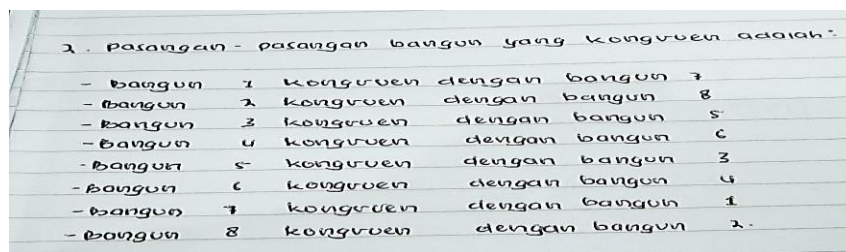 2. Pasangan - pasangan bangun yang kongruen adalah:
- Bangun 1 kongruen dengan bangun 7
- Bangun 2 kongruen dengan bangun 8
- Bangun 3 kongruen dengan bangun 5
- Bangun 4 kongruen dengan bangun 6
- Bangun 5 kongruen dengan bangun 3
- Bangun 6 kongruen dengan bangun 4
- Bangun 7 kongruen dengan bangun 1
- Bangun 8 kongruen dengan bangun 2.